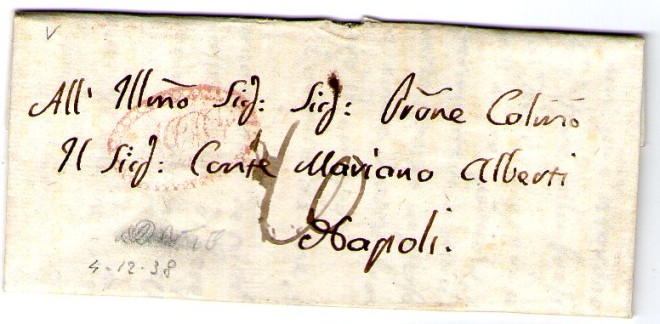 All' Illmō Sigr: Sigr: Prōne Colmō
Il Sigr: Conte Mariano Alberti
Napoli.
4-12-38